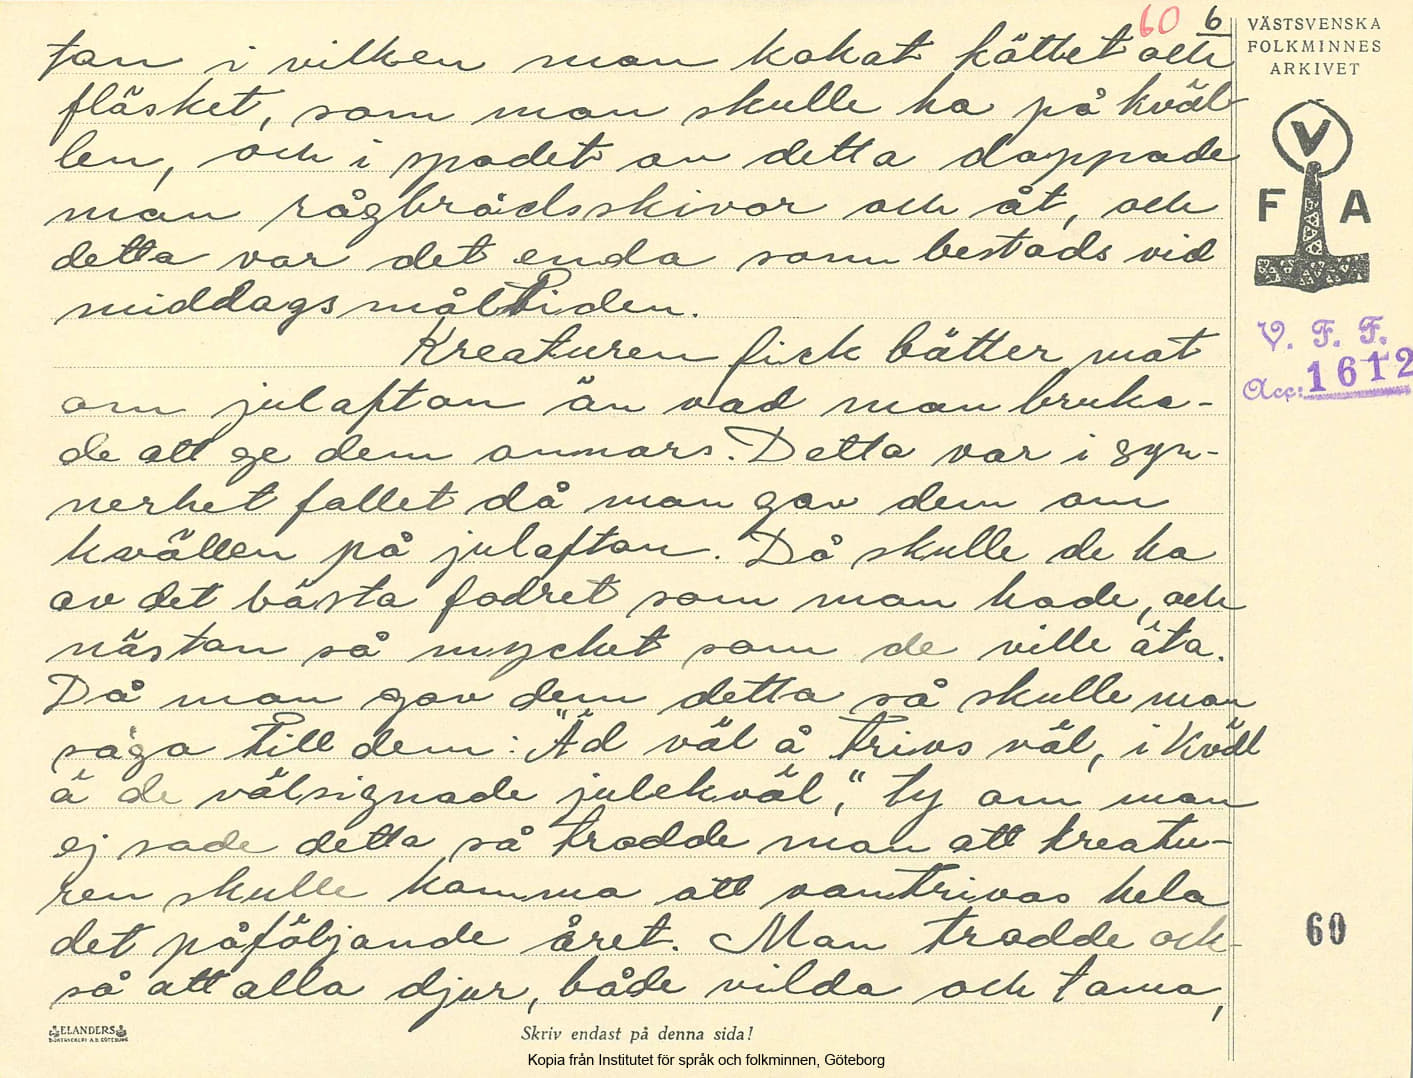 60 6
tan i vilken man kokat köttet och
fläsket, som man skulle ha på kväl
len, och i spadet av detta doppade
man rågbrödsskivor och åt, och
detta var det enda som bestods vid
middagsmåltiden.
Kreaturen fick bätter mat
om julaftan än vad man bruka-
de att ge dem annars. Detta var i syn-
nerhet fallet då man gav dem om
kvällen på julaftan. Då skulle de ha
av det bästa fodret som man hade, och
nästan så mycket som de ville äta.
Då man gav dem detta så skulle man
säga till dem: "Äd väl å trivs väl, i kväll
ä de välsignade julekväl", ty om man
ej sade detta så trodde man att kreatu-
ren skulle komma att vantrivas hela
det påföljande året. Man trodde ock-
så att alla djur, både vilda och tama,
VÄSTSVENSKA
FOLKMINNES
ARKIVET
V
F A
V. F. F.
Acc: 1612
60
ELANDERS
BOKTRYCKERI A.B. GÖTEBORG
Skriv endast på denna sida!
Kopia från Institutet för språk och folkminnen, Göteborg